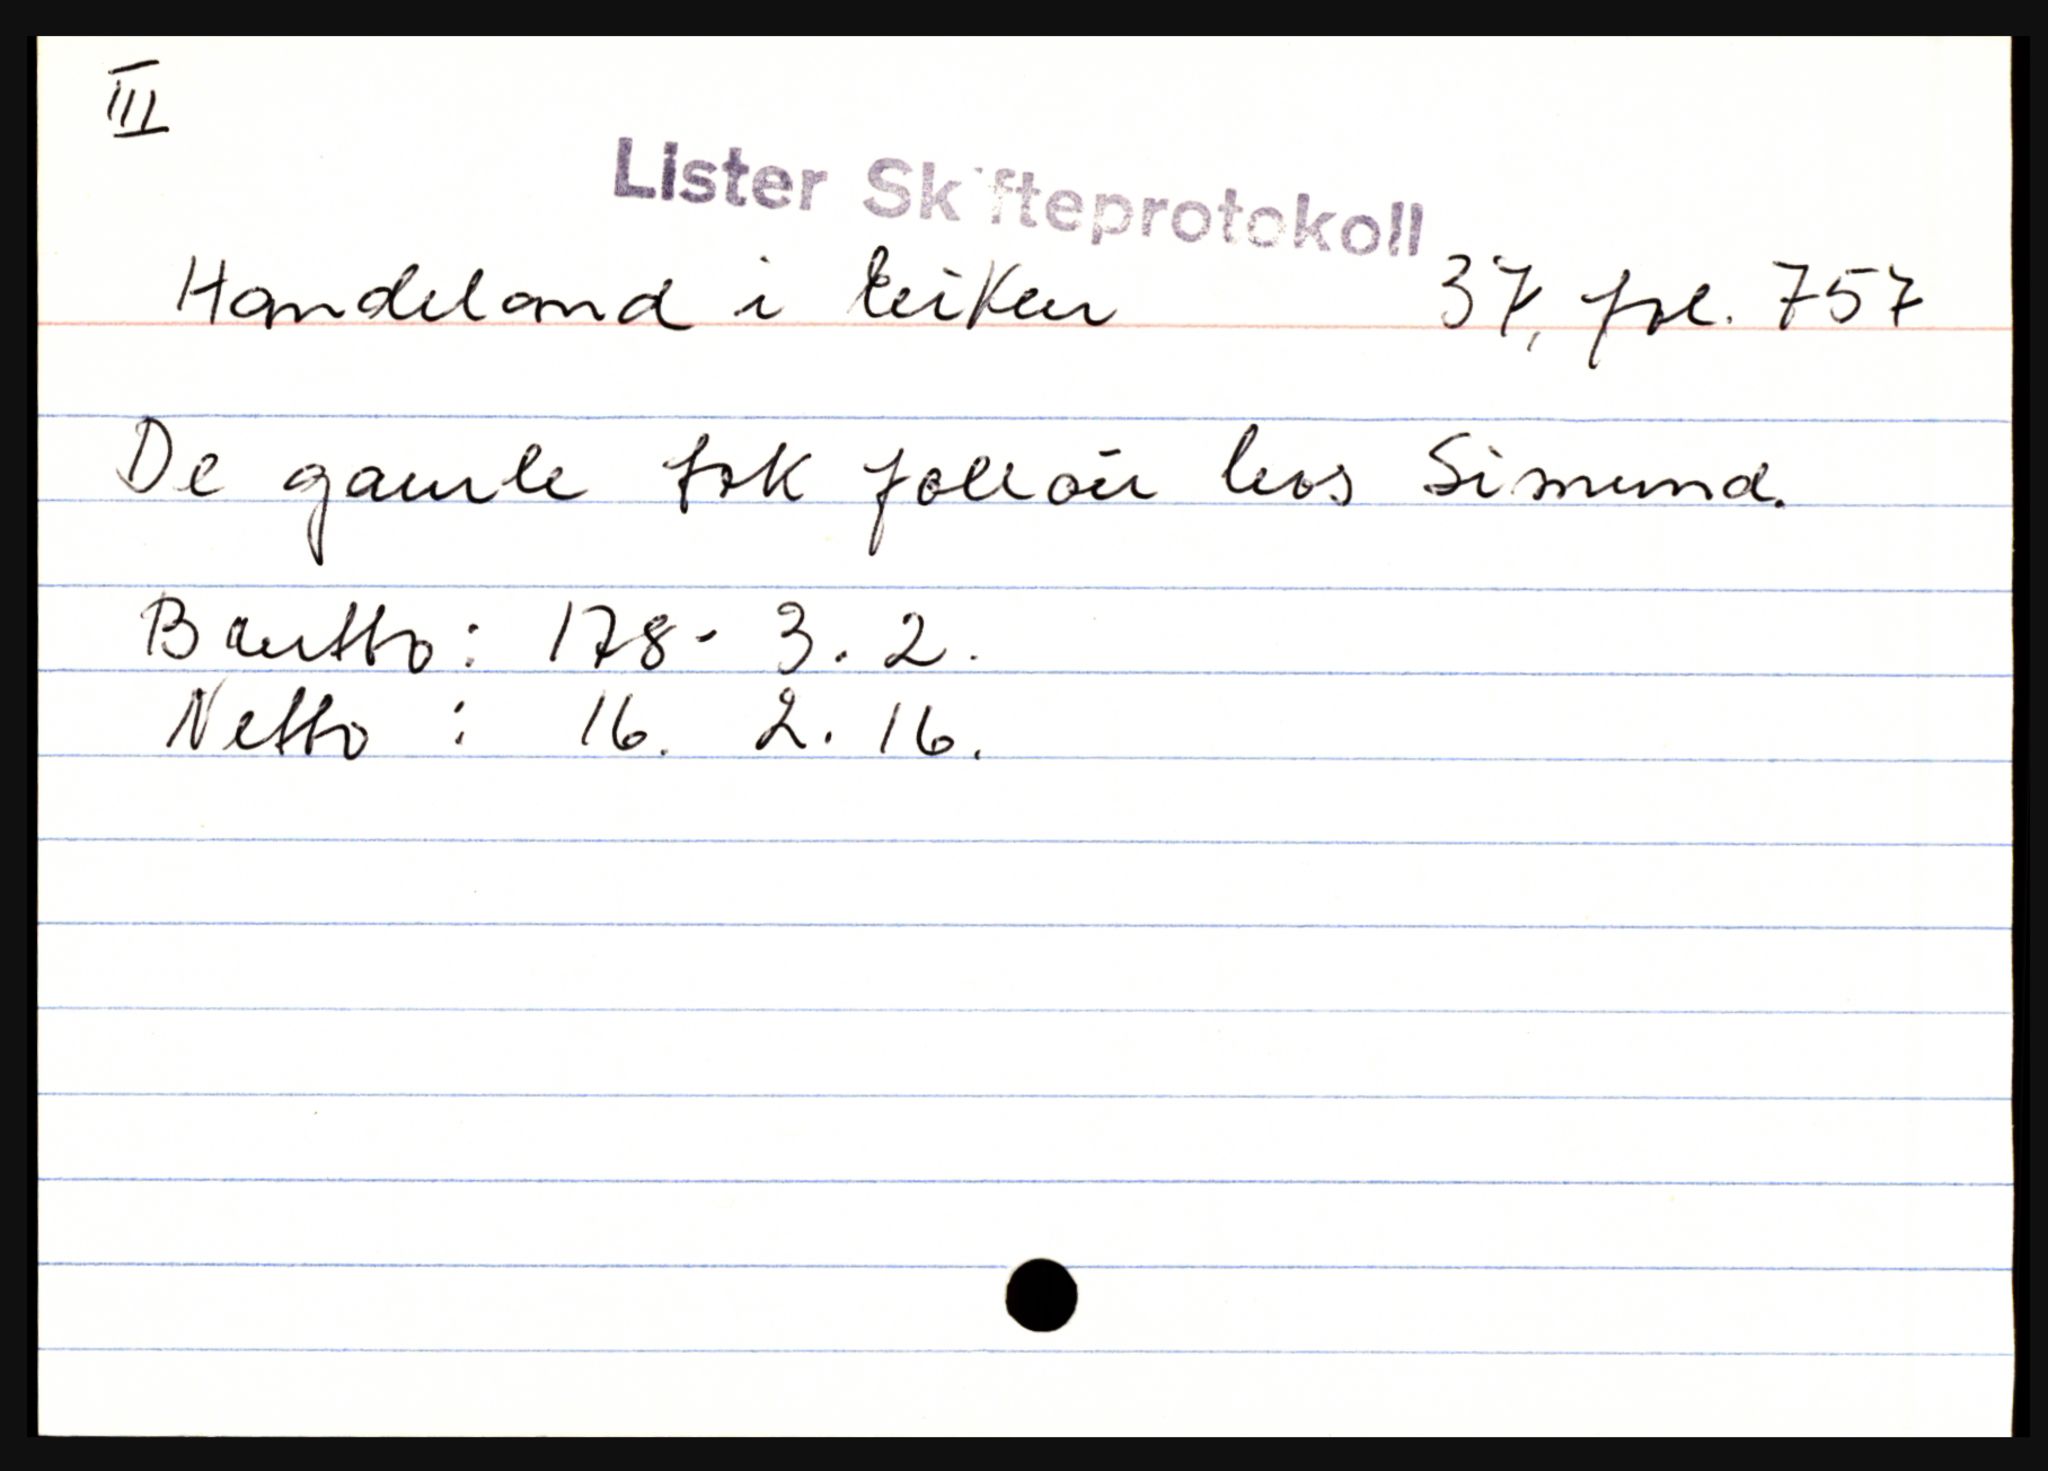 III
Lister Skifteprotokoll
Handeland i Eiken 37, fol. 757
De gamle fik follaue hos Simund.
Brutto: 178- 3. 2.
Netto : 16. 2. 16.